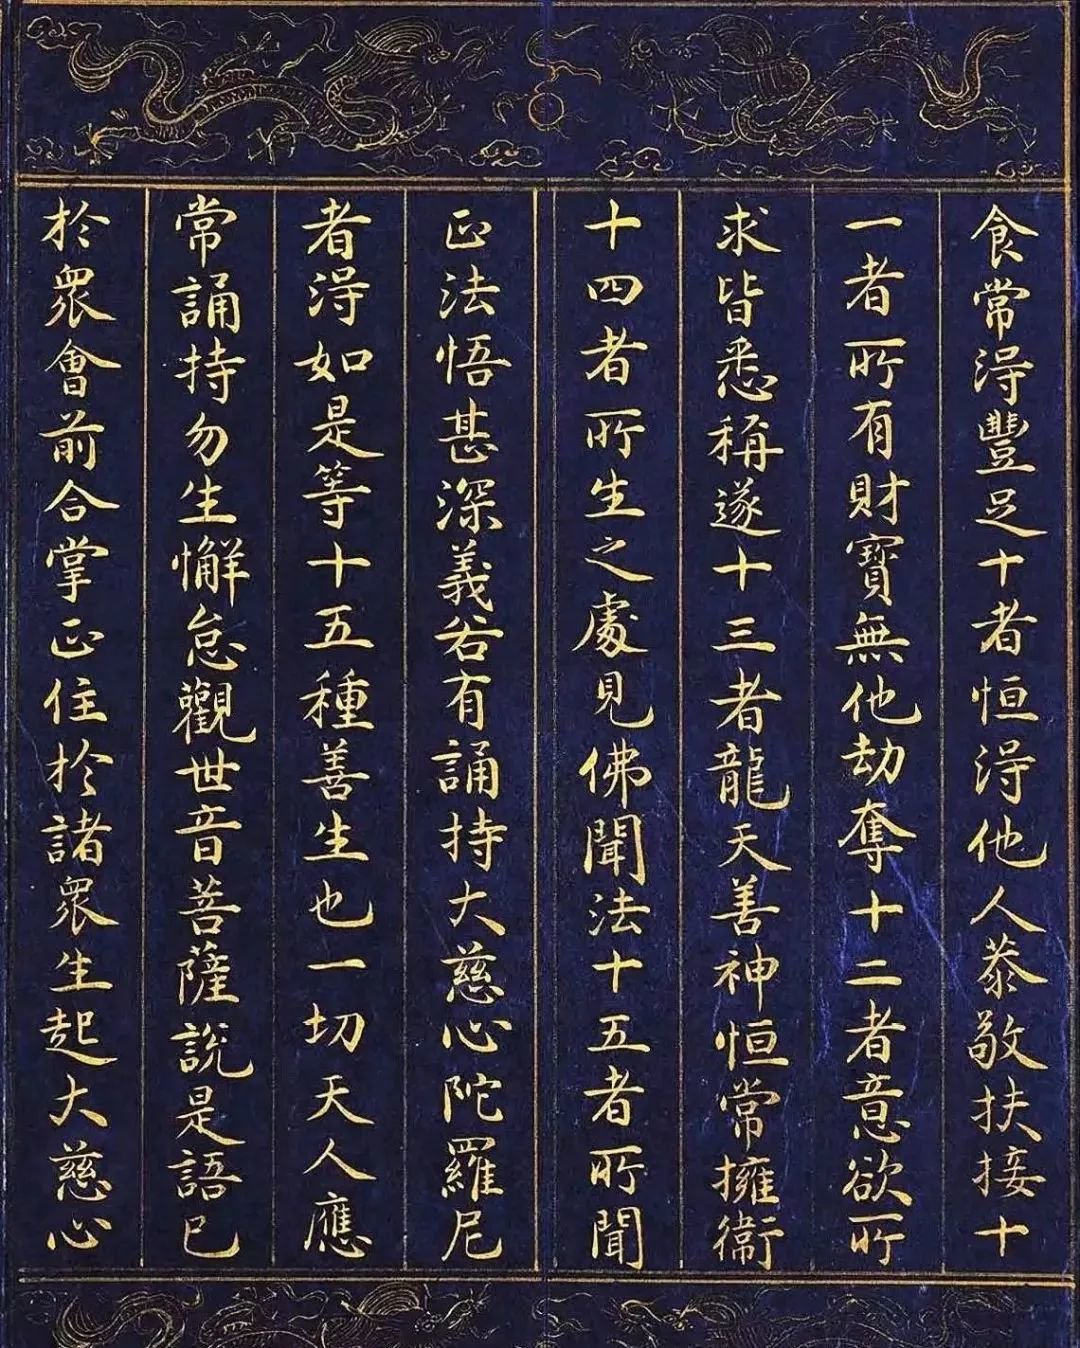 食常得豐足十者恒得他人恭敬扶接十
一者所有財寶無他劫奪十二者意欲所
求皆悉稱遂十三者龍天善神恒常擁衛
十四者所生之處見佛聞法十五者所聞
正法悟甚深義若有誦持大慈心陀羅尼
者得如是等十五種善生也一切天人應
常誦持勿生懈怠觀世音菩薩說是語已
於眾會前合掌正住於諸眾生起大慈心